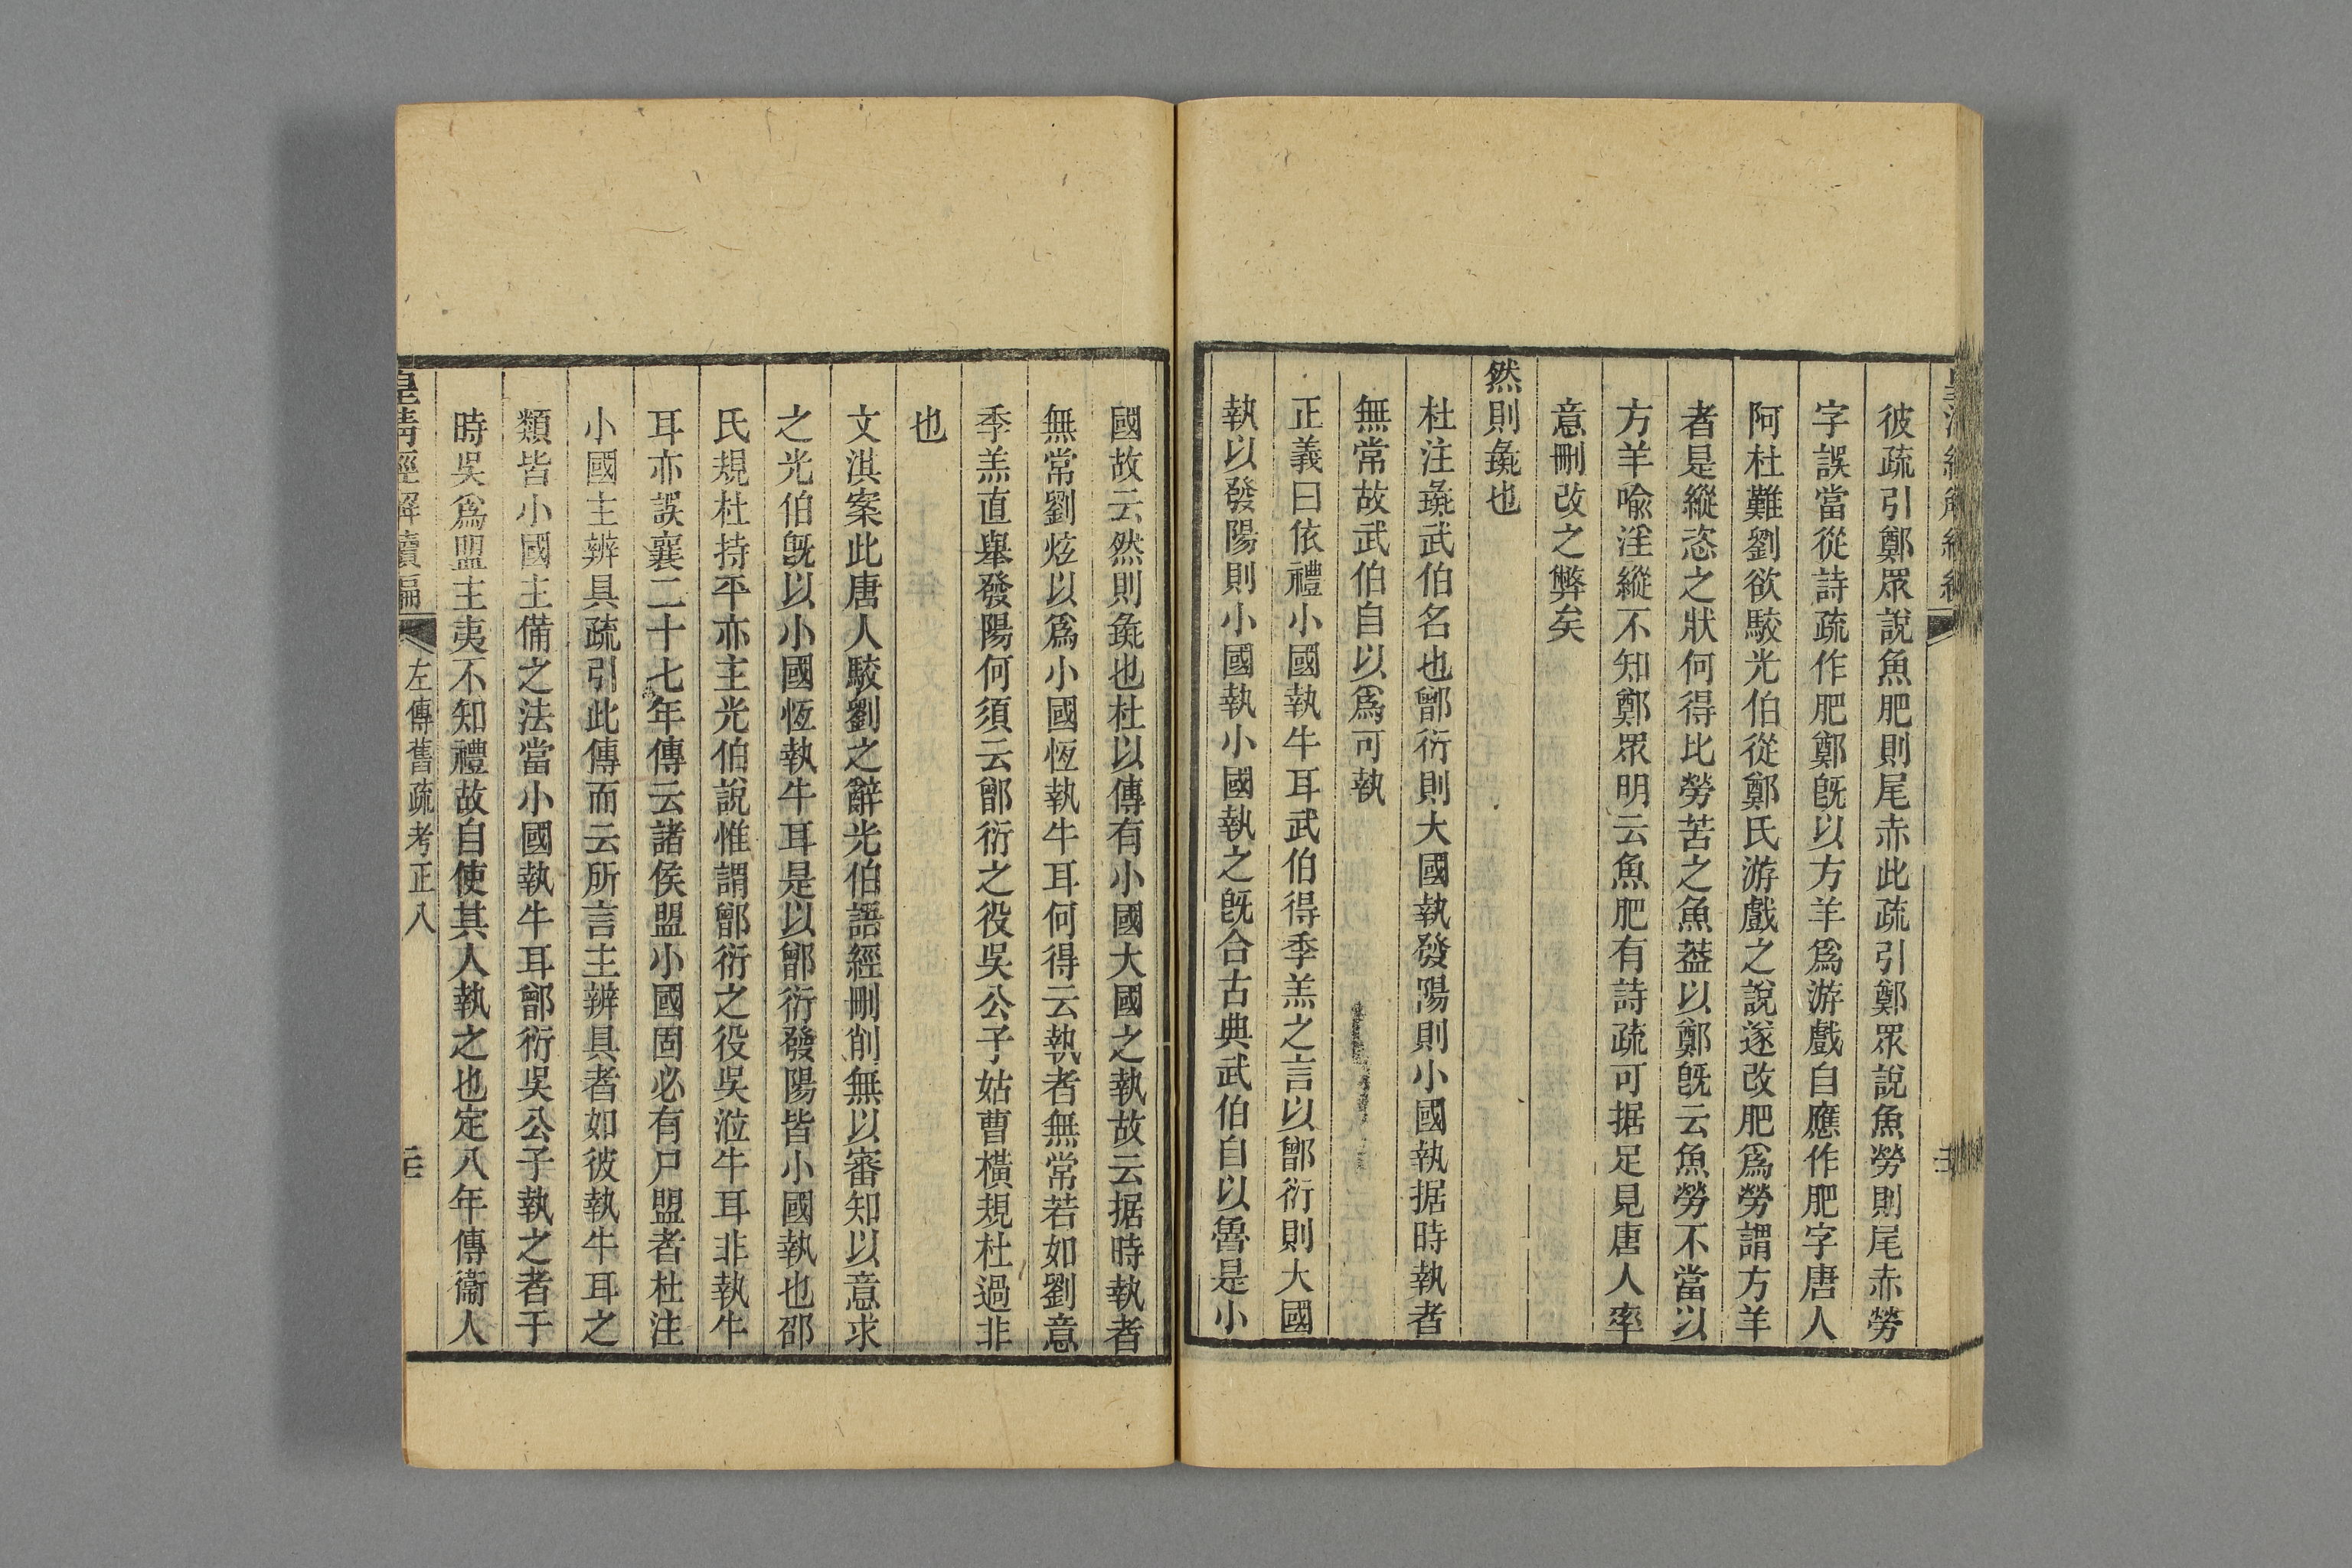 彼疏引鄭眾說魚肥則尾赤此疏引鄭眾說魚勞則尾赤勞
字誤當從詩疏作肥鄭旣以方羊爲游戲自應作肥字唐人
阿杜難劉欲駮光伯從鄭氏游戲之說遂改肥爲勞謂方羊
者是縱恣之狀何得比勞苦之魚葢以鄭旣云魚勞不當以
方羊喩淫縱不知鄭眾明云魚肥有詩疏可据足見唐人率
意刪改之弊矣
然則彘也
杜注彘武伯名也鄫衍則大國執發陽則小國執据時執者
無常故武伯自以爲可執
正義曰依禮小國執牛耳武伯得季羔之言以鄫衍則大國
執以發陽則小國執小國執之旣合古典武伯自以魯是小
國故云然則彘也杜以傳有小國大國之執故云据時執者
無常劉炫以爲小國恆執牛耳何得云執者無常若如劉意
季羔直舉發陽何須云鄫衍之役吳公子姑曹橫規杜過非
也
文淇案此唐人駮劉之辭光伯語經刪削無以審知以意求
之光伯旣以小國恆執牛耳是以鄫衍發陽皆小國執也邵
氏規杜持平亦主光伯說惟謂鄫衍之役吳涖牛耳非執牛
耳亦誤襄二十七年傳云諸侯盟小國固必有尸盟者杜注
小國主辨具疏引此傳而云所言主辨具者如彼執牛耳之
類皆小國主備之法當小國執牛耳鄫衍吳公子執之者于
時吳爲盟主夷不知禮故自使其人執之也定八年傳衞人
皇清經解續編
左傳舊疏考正八